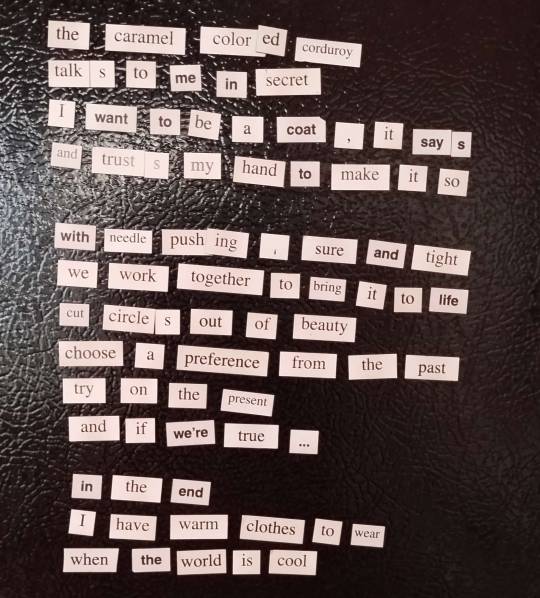 the caramel colored corduroy
talks to me in secret
I want to be a coat, it says
and trusts my hand to make it so
with needle pushing, sure and tight
we work together to bring it to life
cut circles out of beauty
choose a preference from the past
try on the present
and if we're true ...
in the end
I have warm clothes to wear
when the world is cool